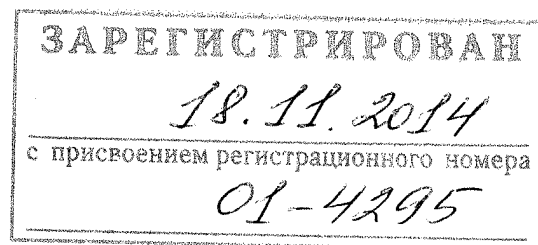 ЗАРЕГИСТРИРОВАН
18.11.2014
с присвоением регистрационного номера
01-4295